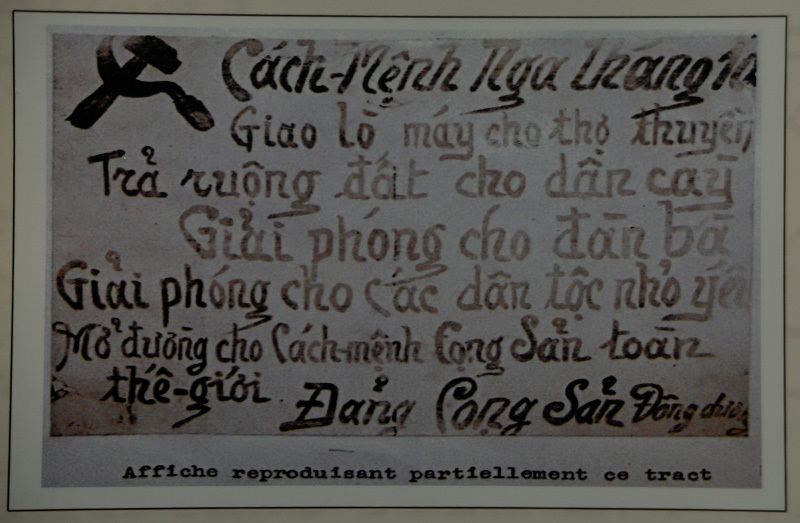 Cách-Mệnh Nga tháng 10
Giao lò máy cho thợ thuyền
Trả ruộng đất cho dân cầy
Giải phóng cho đàn bà
Giải phóng cho các dân tộc nhỏ yếu
Mở đường cho Cách-mệnh Cộng Sản toàn
thế-giới
Đảng Cộng Sản Đông dương
Affiche reproduisant partiellement ce tract